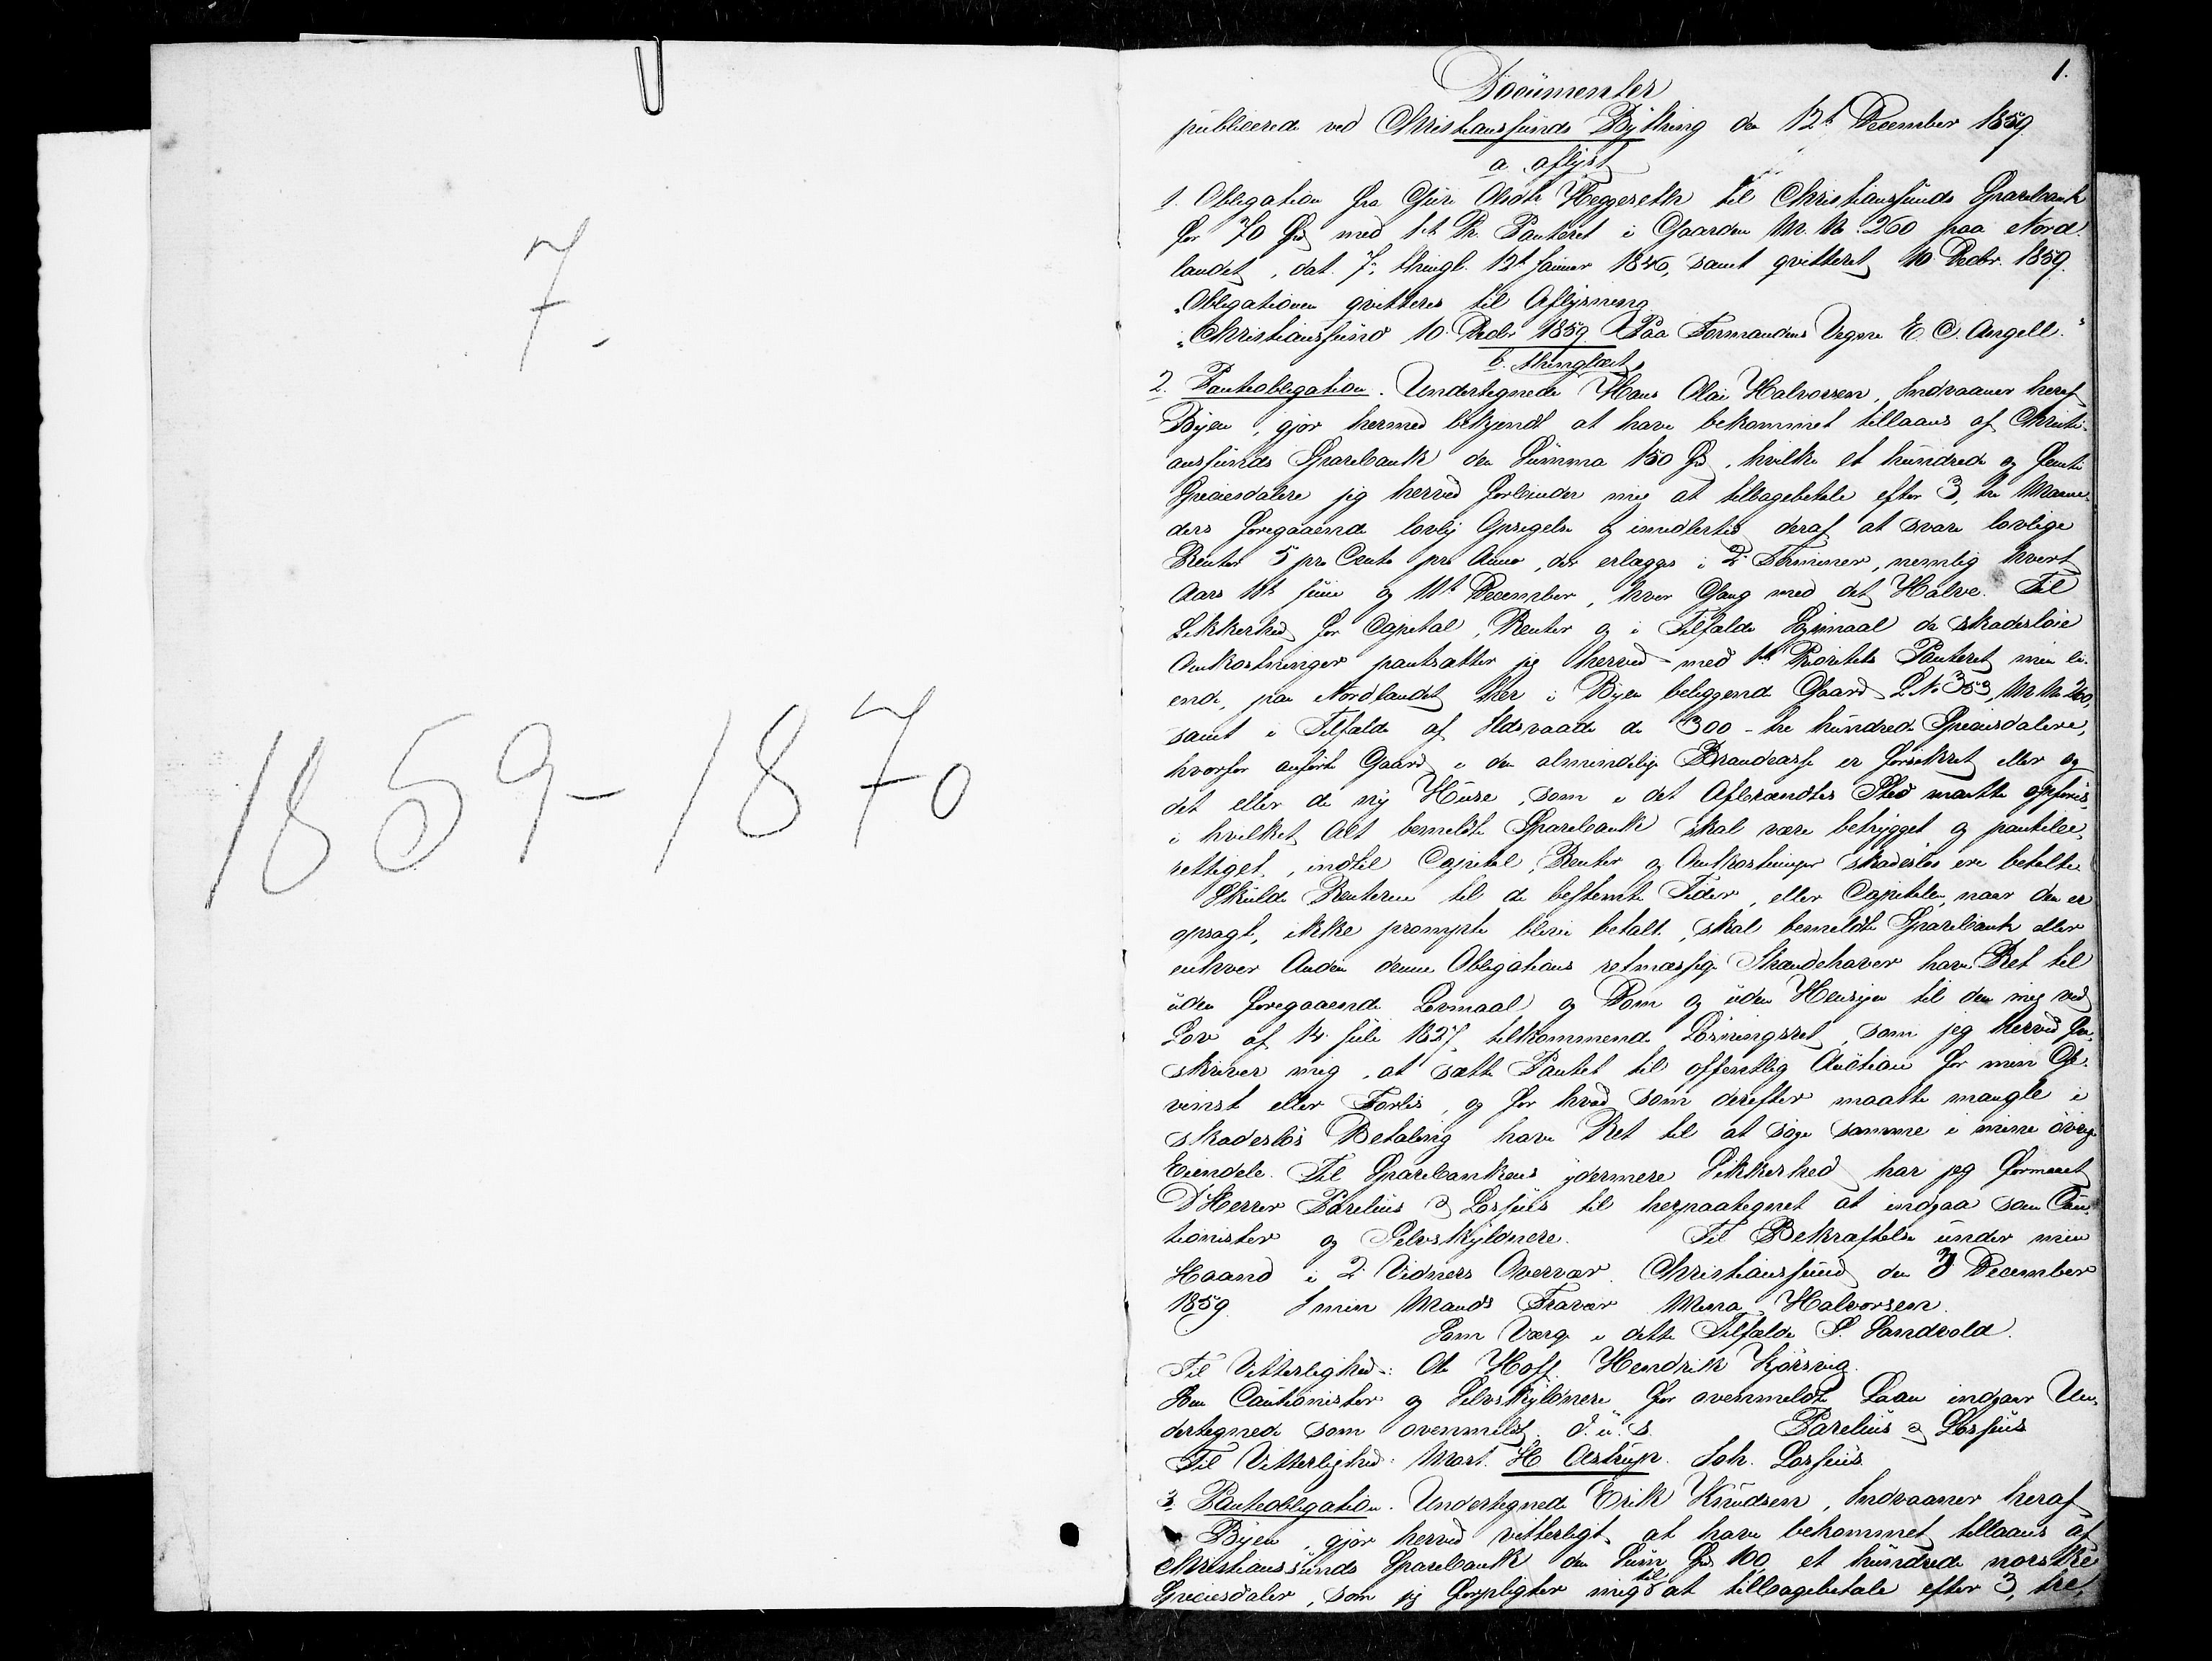 7.
1859-1870
1.
Documenter
publicerede ved Christiansunds Bything den 12te December 1859
a aflyst
1. Obligation fra Guri Olsdtr Heggereth til Christiansunds Sparebank
for 70 Spd med 1ste Pr. Panteret i Gaarden Mr. No. 260 paa Nord-
landet, dat. 7, thingl. 12te Januar 1846, samt qvitteret 10 Decbr. 1859.
"Obligationen qvitteres til Aflysning
"Christiansund 10. Decbr 1859 Paa Formandens Vegne E. C. Angell."
b. thinglæst
2. Panteobligation. Undertegnede Hans Olai Halvorsen, Indvaaner heraf
Byen, gjør hermed bekjendt at have bekommet tillaans af Christi-
ansunds Sparebank den Summa 150 Spd, hvilke et hundrede og femti
Speciesdalere jeg herved forbinder mig at tilbagebetale efter 3, tre Maane-
ders foregaaende lovlig Opsigelse og imidlertid deraf at svare lovlige
Renter 5 pro Cento pro Anno, der erlægges i 2 Terminer, nemlig hvert
Aars 11te Juni og 11te December, hver Gang med det Halve. Til
Sikkerhed for Capital, Renter og i Tilfælde Søgsmaal de skadesløse
Omkostninger pantsætter jeg herved med 1ste Prioritets Panteret min ei-
ende, paa Nordlandet her i Byen beliggende Gaard L No 353, Mr. No. 260,
samt i Tilfælde af Ildsvaade de 300 - tre hundrede Speciesdalere,
hvorfor anførte Gaard i den almindelige Brandcasse er forsikret eller og
det eller de ny Huse, som i det Afbrændtes Sted maatte opføres
i hvilket Alt bemeldte Sparebank skal være betrygget og pantebe-
rettiget, indtil Capital, Renter og Omkostninger skadesløs ere betalte
Skulde Renterne til de bestemte Tider, eller Capitalen, naar den er
opsagt, ikke prompte blive betalt, skal bemeldte Sparebank eller
enhver Anden denne Obligations retmæssige Ihændehaver have Ret til
uden foregaaende Lovmaal og Dom og uden Hensyn til den mig ved
Lov af 14. Juli 1827 tilkommende Løsningsret, som jeg herved fra-
skriver mig, at sætte Pantet til offentlig Auction for min Ge-
vinst eller Forlis, og for hvad som derefter maatte mangle i
skadesløs Betaling have Ret til at søge samme i mine øvrige
Eiendele. Til Sparebankens ydermere Sikkerhed har jeg formaaet
D'Herrer Parelius & Lossius til herpaategnet at indgaa som Cau-
tionister og Selvskyldnere. Til Bekræftelse under min
Haand i 2 Vidners Overvær. Christiansund den 3 December
1859 I min Mands Fravær Mena Halvorsen.
Som Værge i dette Tilfælde S. Sandvold.
Til Vitterlighed: Ole Hoff. Hendrik Korsvig.
Som Cautionister og Selvskyldnere for ovenmeldte Laan indgaar Un-
dertegnede som ovenmeldt. D. u. s. Parelius & Lossius
Til Vitterlighed: Mart. H Astrup. Joh. Lossius.
3. Panteobligation. Undertegnede Erik Knudsen, Indvaaner heraf
Byen, gjør herved vitterligt, at have bekommet tillaans af
Christiansunds Sparebank den Sum Spd. 100, et hundrede norske
Speciesdaler, som jeg forpligter mig til at tilbagebetale efter 3, tre,